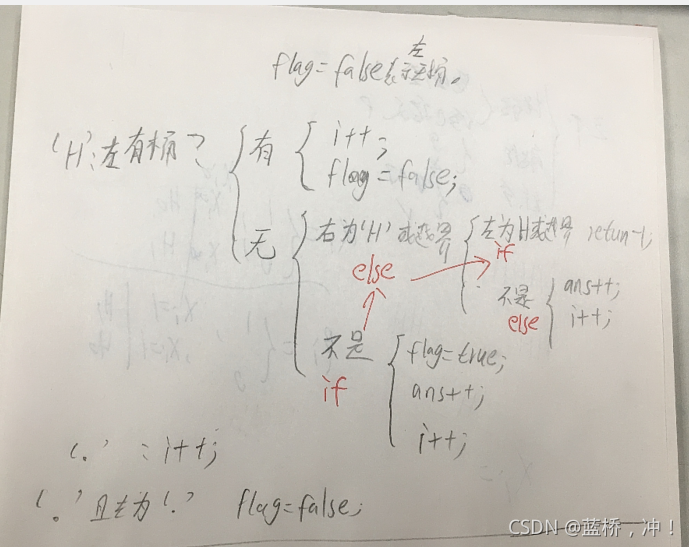 flag=false表示左无桶。
'H'：左有桶？
有
i++;
flag=false;
无
右为'H'或越界
左为H或越界 return-1;
else
if
不是
else
ans++;
i++;
不是
if
flag=true;
ans++;
i++;
'.' : i++;
'.'且左为'.' flag=false;
CSDN @蓝桥，冲！